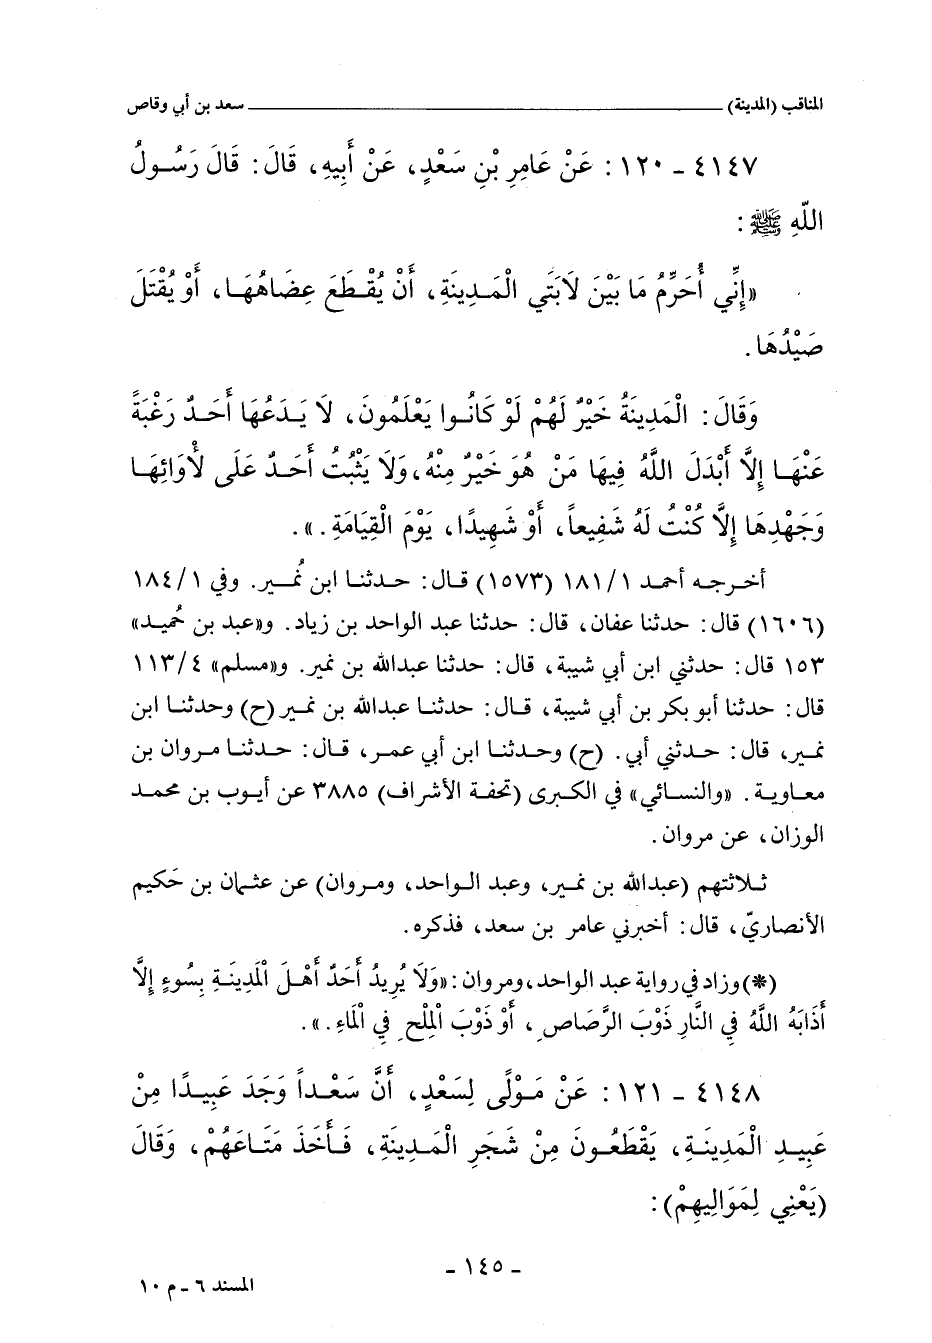 المناقب (المدينة) ــــــــــــــــ سعد بن أبي وقاص
٤١٤٧ ـ ١٢٠ : عَنْ عَامِرِ بْنِ سَعْدٍ، عَنْ أَبِيهِ، قَالَ: قَالَ رَسُولُ
اللّهِ ﷺ :
«إِنِّي أُحَرِّمُ مَا بَيْنَ لاَبَتَيِ الْمَدِينَةِ، أَنْ يُقْطَعَ عِضَاهُهَا، أَوْ يُقْتَلَ
صَيْدُهَا.
وَقَالَ: الْمَدِينَةُ خَيْرٌ لَهُمْ لَوْ كَانُوا يَعْلَمُونَ، لاَ يَدَعُهَا أَحَدٌ رَغْبَةً
عَنْهَا إِلاَّ أَبْدَلَ اللَّهُ فِيهَا مَنْ هُوَ خَيْرٌ مِنْهُ، وَلاَ يَثْبُتُ أَحَدٌ عَلَى لأْوَائِهَا
وَجَهْدِهَا إِلاَّ كُنْتُ لَهُ شَفِيعاً، أَوْ شَهِيدًا، يَوْمَ الْقِيَامَةِ.».
أخرجه أحمد ١/١٨١ (١٥٧٣) قال: حدثنا ابن نُمير. وفي ١/١٨٤
(١٦٠٦) قال: حدثنا عفان، قال: حدثنا عبد الواحد بن زياد. و«عبد بن حُميد»
١٥٣ قال: حدثني ابن أبي شيبة، قال: حدثنا عبدالله بن نمير. و«مسلم» ٤/١١٣
قال: حدثنا أبو بكر بن أبي شيبة، قال: حدثنا عبدالله بن نمير (ح) وحدثنا ابن
نمير، قال: حدثني أبي. (ح) وحدثنا ابن أبي عمر، قال: حدثنا مروان بن
معاوية. «والنسائي» في الكبرى (تحفة الأشراف) ٣٨٨٥ عن أيوب بن محمد
الوزان، عن مروان.
ثلاثتهم (عبدالله بن نمير، وعبد الواحد، ومروان) عن عثمان بن حَكيم
الأنصاريّ، قال: أخبرني عامر بن سعد، فذكره.
(*) وزاد في رواية عبد الواحد، ومروان: «وَلاَ يُرِيدُ أَحَدٌ أَهْلَ الْمَدِينَةِ بِسُوءٍ إِلاَّ
أَذَابَهُ اللَّهُ فِي النَّارِ ذَوْبَ الرَّصَاصِ، أَوْ ذَوْبَ الْمِلْحِ فِي الْمَاءِ.».
٤١٤٨ ـ ١٢١ : عَنْ مَوْلًى لِسَعْدٍ، أَنَّ سَعْداً وَجَدَ عَبِيدًا مِنْ
عَبِيدِ الْمَدِينَةِ، يَقْطَعُونَ مِنْ شَجَرِ الْمَدِينَةِ، فَأَخَذَ مَتَاعَهُمْ، وَقَالَ
(يَعْنِي لِمَوَالِيهِمْ):
ـ ١٤٥ ـ
المسند ٦ ـ م ١٠